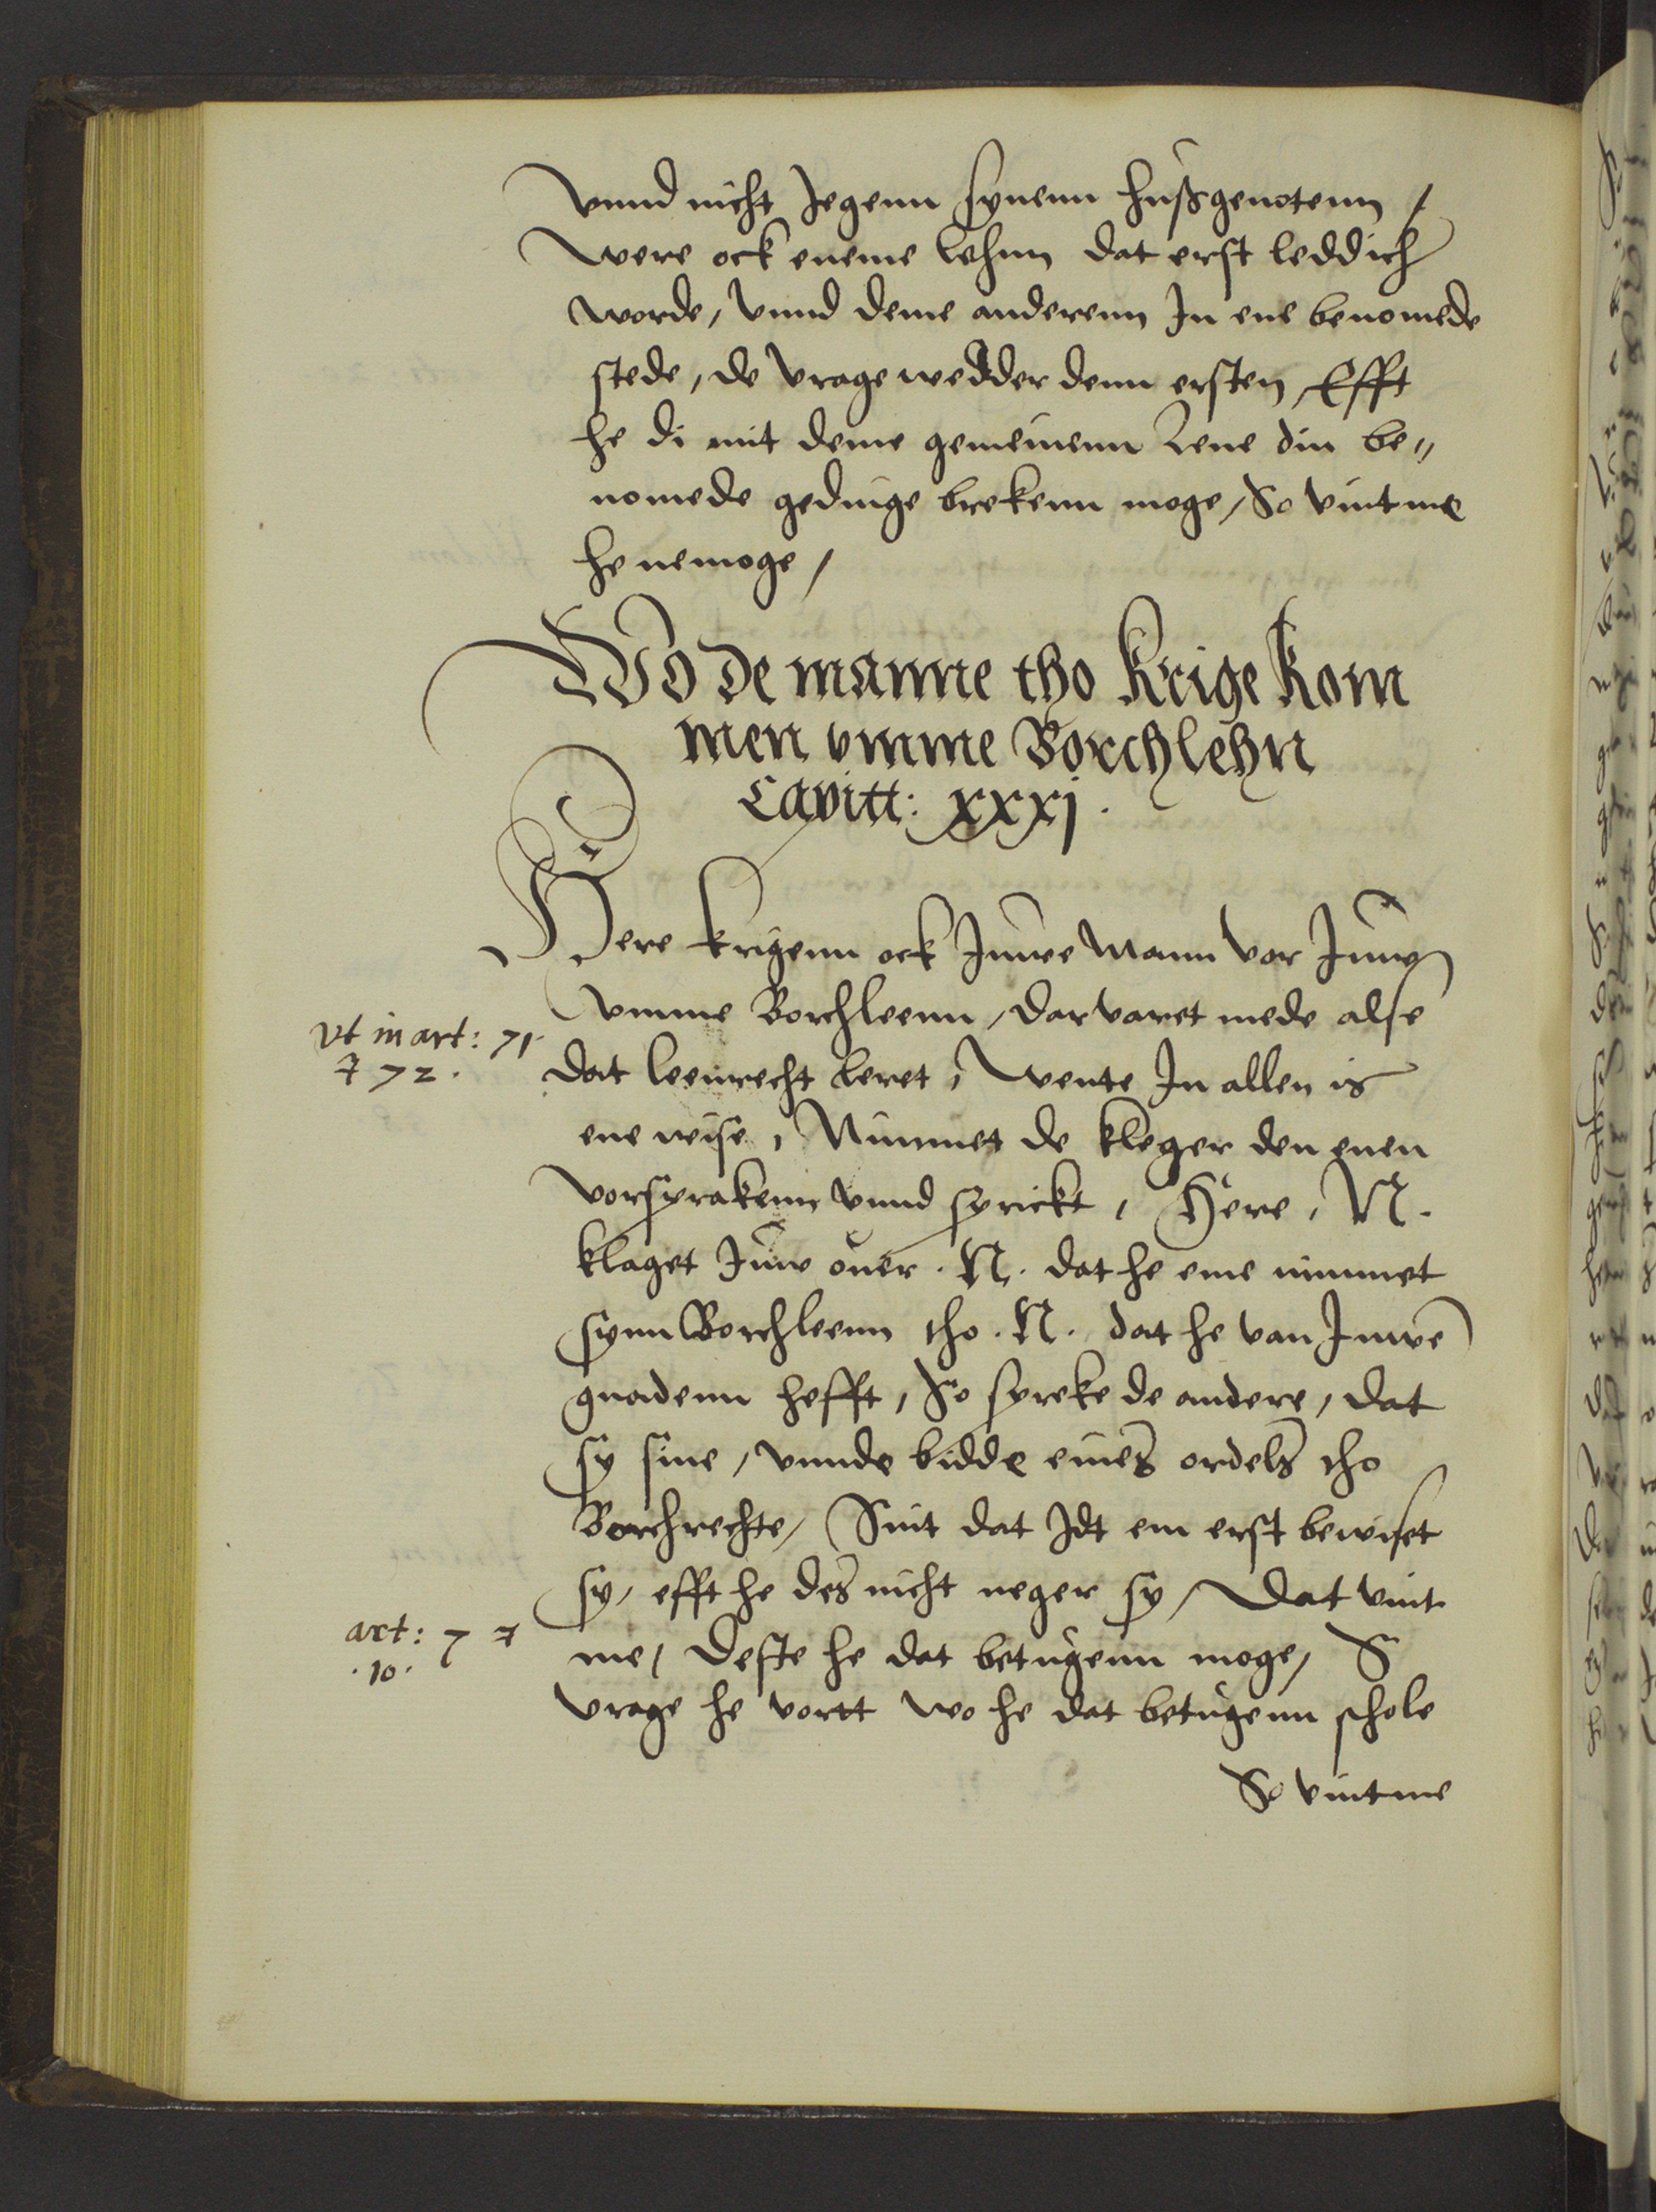 Vnnd nicht Jegenn synenn hußgenotenn /
Were ock eneme lehnn dat erst leddich
worde, vnnd deme anderenn Jn ene benomede
stede, de vrage wedder denn ersten, Efft
he di mit deme gemeinenn Lene din be„
nomede gedinge brekenn moge, So vint me
he ne moge /
Wo de manne tho krige kom
men vmme Borchlehn
Capitt: xxxj.
Here krigenn ock Juwe Mann vor Juw
vmme Borchleenn, dar varet mede alse
vt in art: 71.
& 72.
dat leenrecht leret, Wente Jn allen is
ene wise, Nimmet de kleger den enen
vorsprakenn vnnd sprickt, Here, N.
klaget Juw ouer .N. dat he eme nimmet
synn Borchleenn tho .N. dat he van Juwe
gnadenn hefft, So spreke de andere, dat
sy sine, vnnde bidde eines ordels tho
Borchrechte, Sint dat Jdt em erst bewiset
sy, efft he des nicht neger sy, Dat vint
art: 7 &
.10.
me, Deste he dat betugenn moge, S
vrage he vortt wo he dat betugenn schole
So vint me